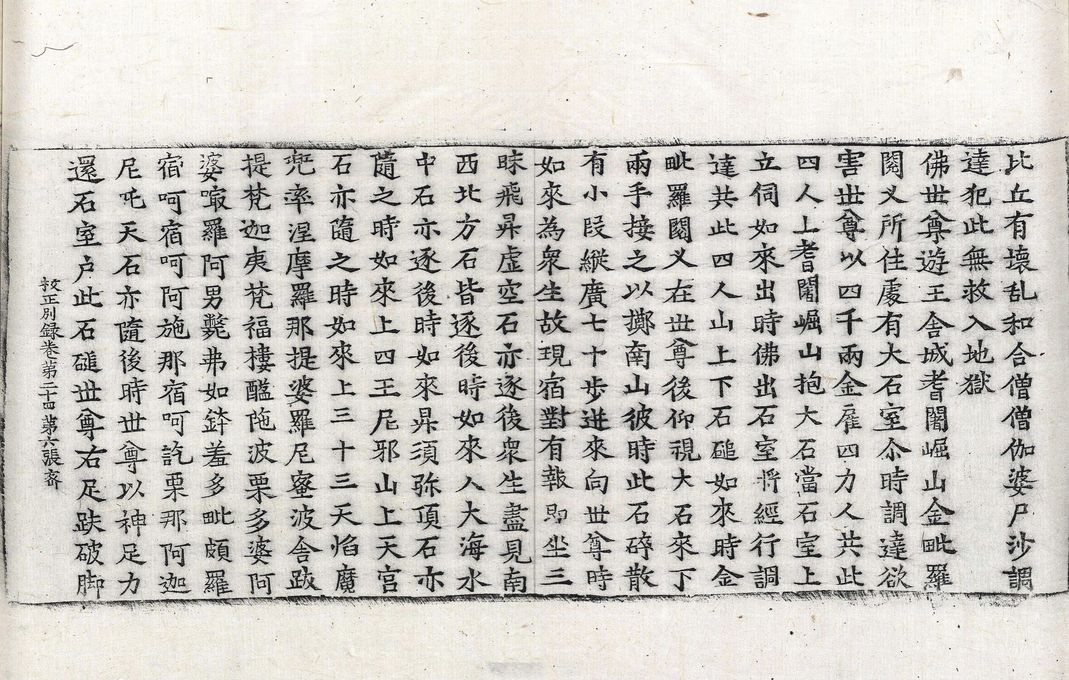 比丘有壞乱和合僧僧伽婆尸沙調
達犯此無救入地獄
佛世尊遊王舍城耆闍崛山金毗羅
閱义所住處有大石室尒時調達欲
害世尊以四千兩金雇四力人共此
四人上耆闍崛山抱大石當石室上
立伺如來出時佛出石室將經行調
達共此四人山上下石磓如來時金
毗羅閱义在世尊後仰視大石來下
兩手接之以擲南山彼時此石碎散
有小段縱廣七十步迸來向世尊時
如來為衆生故現宿對有報即坐三
昧飛昇虛空石亦逐後衆生盡見南
西北方石皆逐後時如來入大海水
中石亦逐後時如來昇須弥頂石亦
隨之時如來上四王尼邪山上天宮
石亦隨之時如來上三十三天焰魔
兜率涅摩羅那提婆羅尼蜜波舍跋
提梵迦夷梵福樓醯陁波栗多婆阿
婆㗚羅阿男㲲弗如鉢羞多毗頗羅
宿呵宿呵阿施那宿呵訖栗那阿迦
尼吒天石亦隨後時世尊以神足力
還石室户此石磓世尊右足趺破脚
挍正別録卷第二十四 第六張 斎